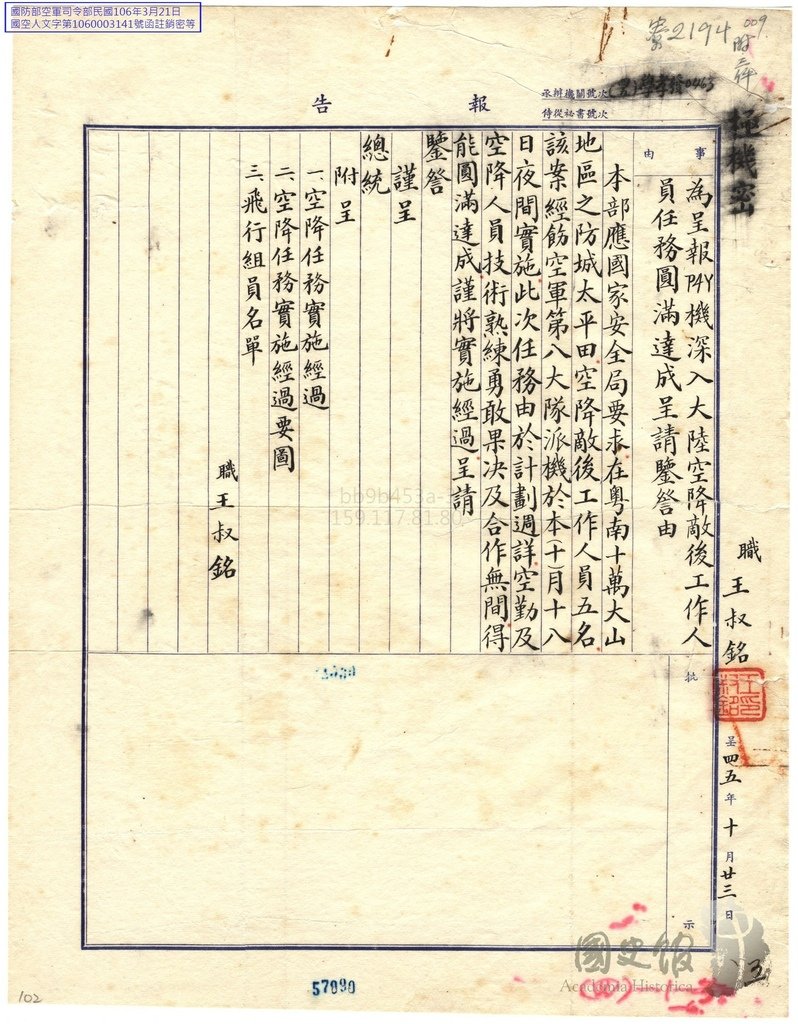 國防部空軍司令部民國106年3月21日
國空人文字第1060003141號函註銷密等
2194
009
報告
承辦機關號次
0463
侍從祕書號次
極機密
事由
為呈報P4Y機深入大陸空降敵後工作人
員任務圓滿達成呈請鑒詧由
本部應國家安全局要求在粵南十萬大山
地區之防城太平田空降敵後工作人員五名
該案經飭空軍第八大隊派機於本(十)月十八
日夜間實施此次任務由於計劃週詳空勤及
空降人員技術熟練勇敢果決及合作無間得
能圓滿達成謹將實施經過呈請
鑒詧
謹呈
總統
附呈
一、空降任務實施經過
二、空降任務實施經過要圖
三、飛行組員名單
職王叔銘
職王叔銘
呈四五年十月廿三日
批示
bb9b453a-
159.117.81.80
國史館
Academia Historica
57090
102